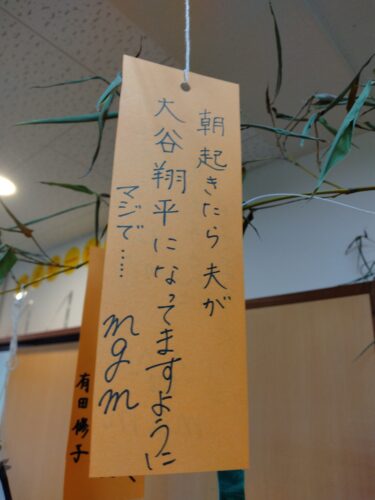 朝起きたら夫が
大谷翔平になってますように
マジで……
mgm
有田修子